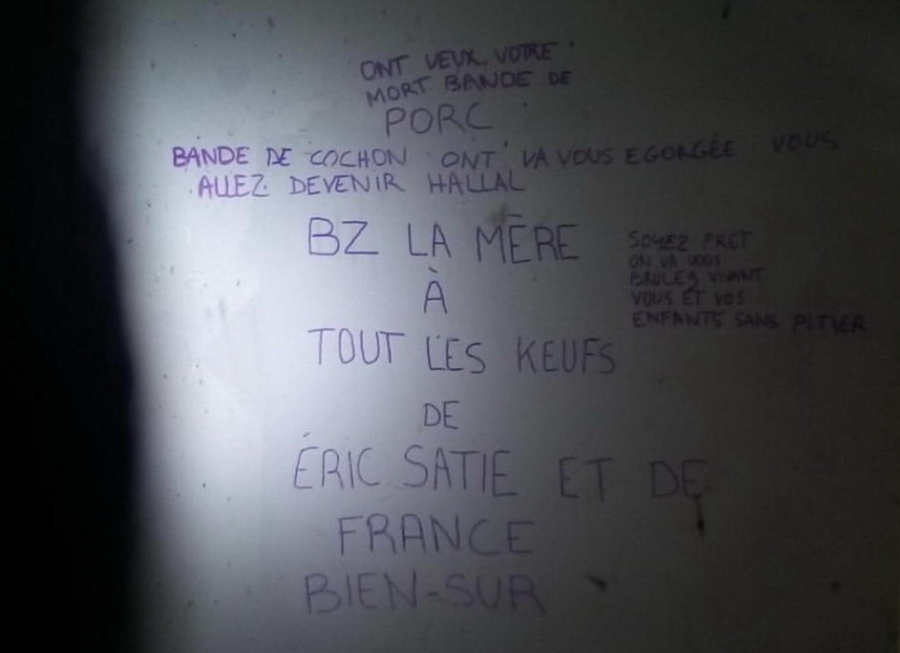 ONT VEUX VOTRE
MORT BANDE DE
PORC
BANDE DE COCHON ONT VA VOUS EGORGÉE VOUS
ALLEZ DEVENIR HALLAL
BZ LA MÈRE
À
TOUT LES KEUFS
DE
ÉRIC SATIE ET DE
FRANCE
BIEN-SUR
SOYEZ PRET
ON VA VOUS
BRULER VIVANT
VOUS ET VOS
ENFANTS SANS PITIER